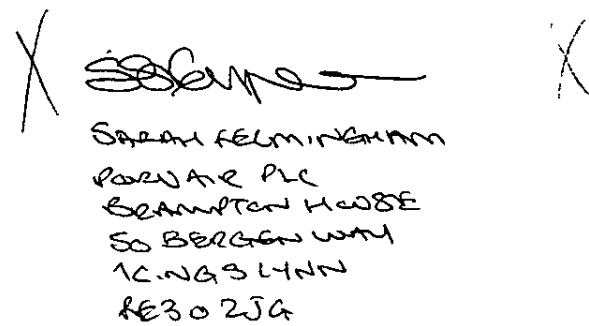 X X
SARAH FELMINGHAM
PORVAIR PLC
BRAMPTON HOUSE
50 BERGEN WAY
KINGS LYNN
PE30 2JG